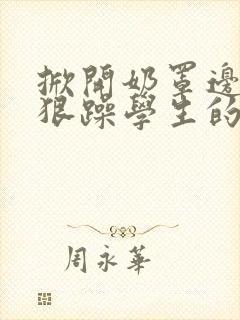 掀開奶罩邊
狠躁學生的
周永華